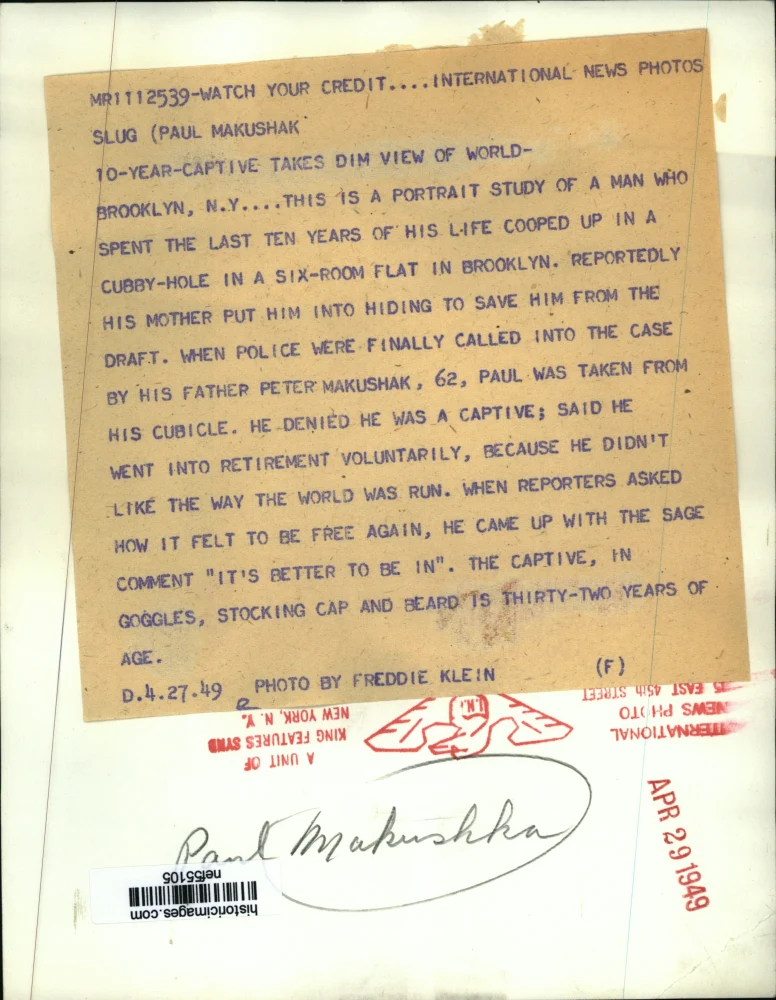 MR1112539-WATCH YOUR CREDIT....INTERNATIONAL NEWS PHOTOS
SLUG (PAUL MAKUSHAK
10-YEAR-CAPTIVE TAKES DIM VIEW OF WORLD-
BROOKLYN, N.Y....THIS IS A PORTRAIT STUDY OF A MAN WHO
SPENT THE LAST TEN YEARS OF HIS LIFE COOPED UP IN A
CUBBY-HOLE IN A SIX-ROOM FLAT IN BROOKLYN. REPORTEDLY
HIS MOTHER PUT HIM INTO HIDING TO SAVE HIM FROM THE
DRAFT. WHEN POLICE WERE FINALLY CALLED INTO THE CASE
BY HIS FATHER PETER MAKUSHAK, 62, PAUL WAS TAKEN FROM
HIS CUBICLE. HE DENIED HE WAS A CAPTIVE; SAID HE
WENT INTO RETIREMENT VOLUNTARILY, BECAUSE HE DIDN'T
LIKE THE WAY THE WORLD WAS RUN. WHEN REPORTERS ASKED
HOW IT FELT TO BE FREE AGAIN, HE CAME UP WITH THE SAGE
COMMENT "IT'S BETTER TO BE IN". THE CAPTIVE, IN
GOGGLES, STOCKING CAP AND BEARD IS THIRTY-TWO YEARS OF
AGE.
D.4.27.49 PHOTO BY FREDDIE KLEIN (F)
A UNIT OF
KING FEATURES SYND
NEW YORK, N. Y.
I.N.
INTERNATIONAL
NEWS PHOTO
EAST 45th STREET
APR 29 1949
Paul Makushka
historicimages.com
nef55105